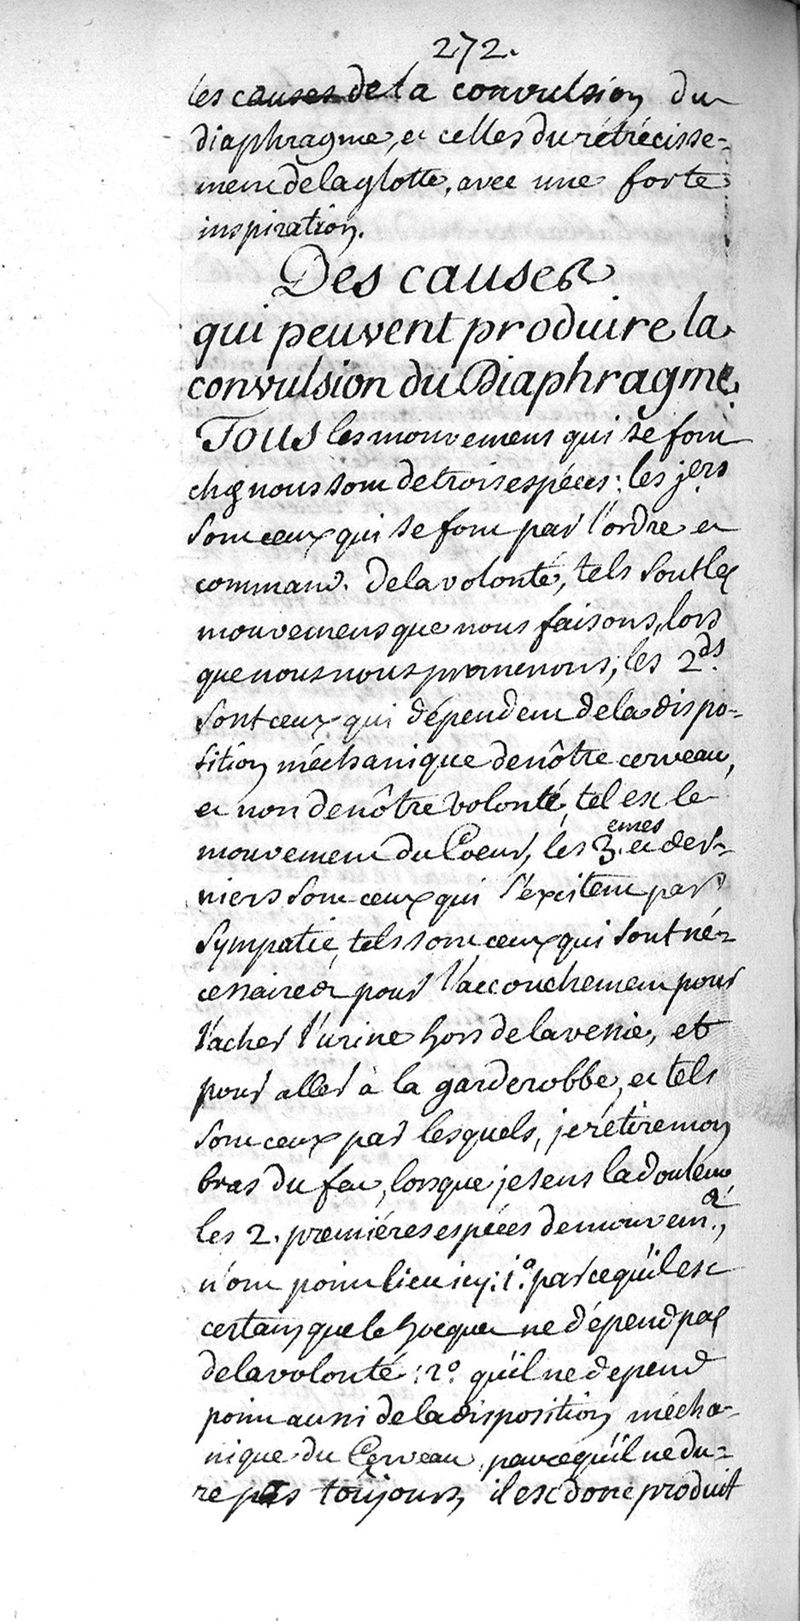 272.
les causes de la convulsion du
diaphragme, et celles du rétrécisse-
ment de la glotte, avec une forte
inspiration.
Des causes
qui peuvent produire la
convulsion du Diaphragme.
Tous les mouvemens qui se font
chez nous sont de trois espéces: les 1ers
sont ceux qui se font par l'ordre et
command. de la volonté, tels sont les
mouvemens que nous faisons, lors
que nous nous promenons; les 2ds.
sont ceux qui dépendent de la dispo-
sition méchanique de nôtre cerveau,
et non de nôtre volonté, tel est le
mouvement du Coeur, les 3.emes et der-
niers sont ceux qui s'excitent par
sympatie, tels sont ceux qui sont né-
cessaires pour l'accouchement pour
lacher l'urine hors de la vessie, et
pour aller à la garderobbe, et tels
sont ceux par lesquels, je rétire mon
bras du feu, lorsque je sens la douleur
les 2. premiéres espéces de mouvem.s,
n'ont point lieu icy: 1.o parce qu'il est
certain que le hocquet ne dépend pas
de la volonté: 2o. qu'il ne depend
point aussi de la disposition mécha-
nique du Cerveau, parcequ'il ne du-
re pas toûjours, il est donc produit